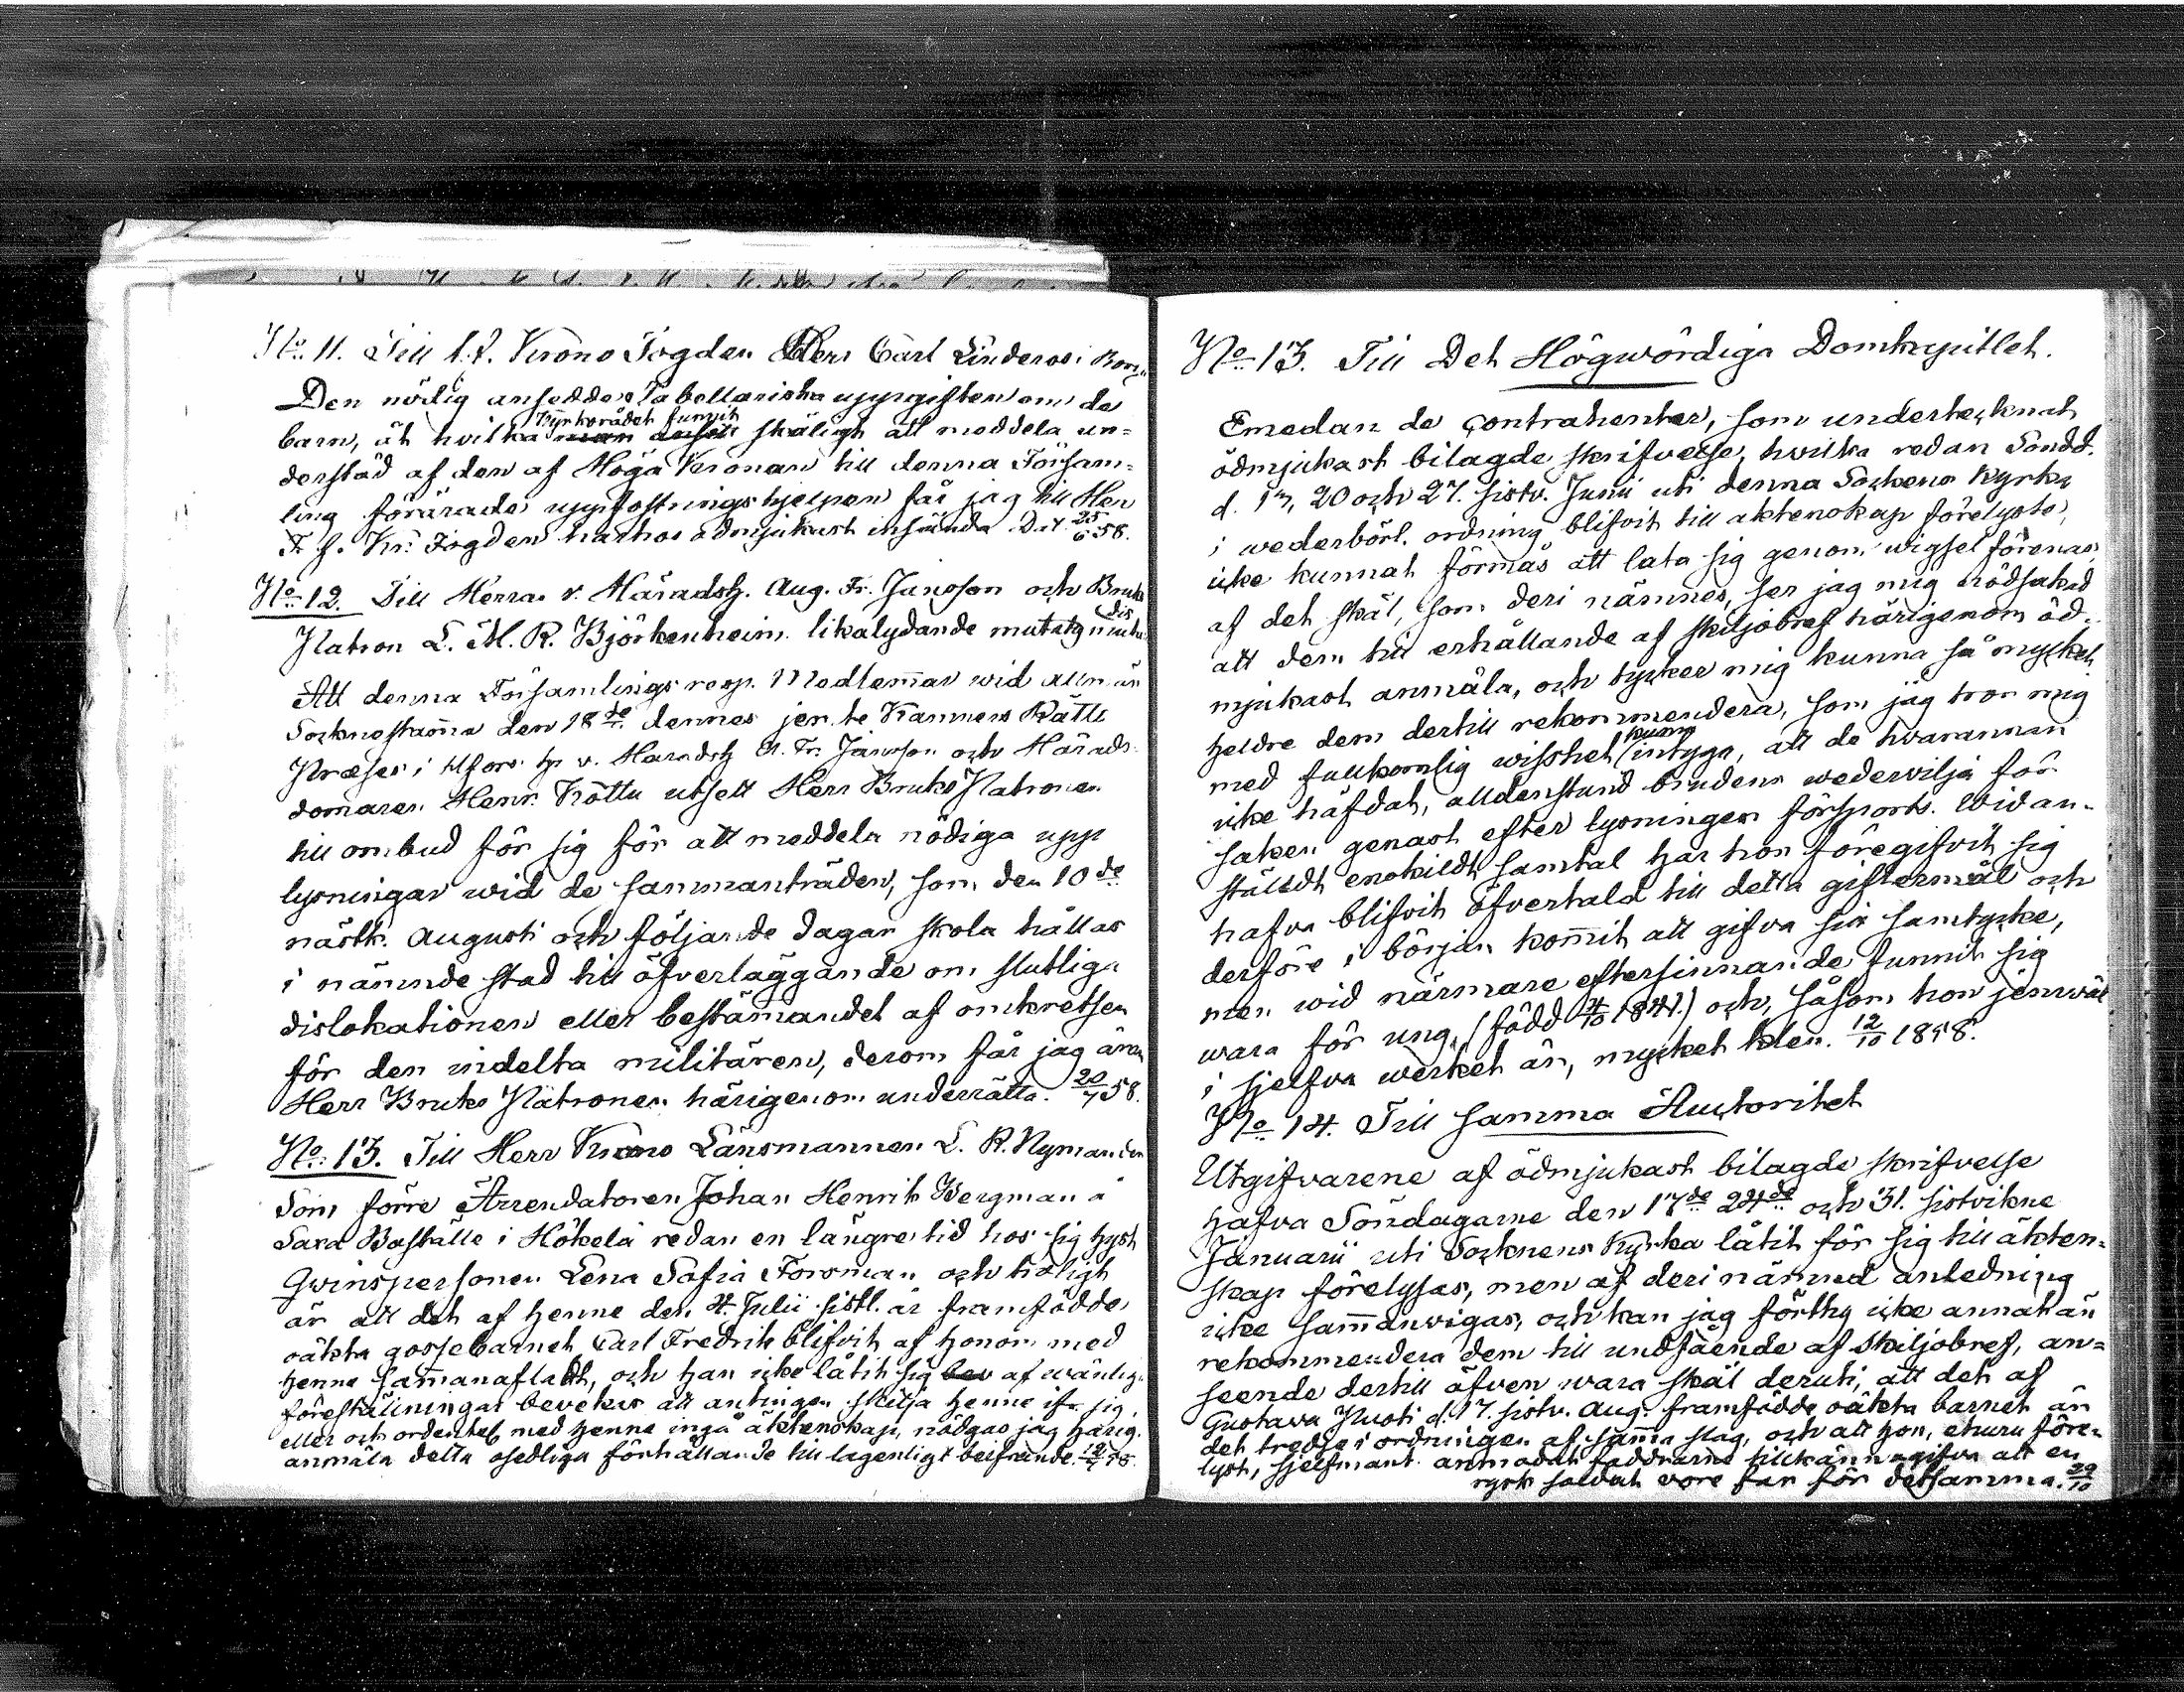 No 11. Till t.f. Krono Fogden Herr Carl Linderos i Borg
Den nödig ansedde Tabellariska uppgiften om de
barn, åt hvilka Kyrkorådet funnit skäligt att meddela un=
derstöd af den af Höga Kronan till denna Försam=
ling förärade uppfostringshjelpen får jag till Herr
T. f. Kr. Fogden härhos ödmjukast insända Dat 25/6 58.
No 12. Till Herrar v. Häradsh. Aug. Fr. Jansson och Bruks
Patron L. M. R. Björkenheim likalydande mutatis mutan
dis
Att denna Församlings resp. Medlem̄ar wid allmän
Socknestäm̄a den 18de dennes jemte Kamners Rätts
Præses i H. h. v. Haradsh A. Fr. Jansson och Härads
domaren Henr. Köttu utsett Herr Bruks Patronen
till ombud för sig för att meddela nödiga upp
lysningar wid de sammanträden, som den 10de
nästk. Augusti och följande dagar skola hållas
i näm̄nde stad till öfverläggande om slutliga
dislokationen eller bestäm̄andet af omkretsen
för den indelta militären, derom får jag äran
Herr Bruks Patronen härigenom underrätta. 20/7 58.
No 13. Till Herr Krono Länsmannen L. R. Nymander
Som förre Arrendatoren Johan Henrik Bergman å
Sara Boställe i Hökelä redan en längre tid hos sig hyst
Qwinspersonen Lena Sofia Forsman och troligt
är att det af henne den 4. Julii sistl. år framfödde
oäkta gossebarnet Carl Fredrik blifvit af honom med
henne sam̄anafladt, och han icke låtit sig bev af wänlig
föreställningar bevekas att antingen skilja henne ifr. sig,
eller och ordentel. med henne ingå äktenskap, nödgas jag härig.
anmäla detta osedliga förhållande till lagenligt beifrande. 12/7 58.
No 13. Till Det Högwördiga Domkapitlet.
Emedan de contrahenter, som undertecknat
ödmjukast bilagde skrifvelse, hvilka redan Sondd.
d. 13, 20 och 27. sistv. Junii uti denna Sockens Kyrka
i wederbörl. ordning blifvit till äktenskap förelyste,
icke kunnat förmås att låta sig genom wigsel förenas,
af det skäl, som deri nämnes, ser jag mig nödsakad
att dem till erhållande af skiljobref härigenom öd-
mjukast anmäla, och tycker mig kunna så mycket
heldre dem dertill rekommendera, som jag tror mig
med fullkomlig wisshet kunna intyga, att de hvarannan
icke häfdat, alldenstund brudens wedervilja för
saken genast efter lysningen försports. Wid an-
ställdt enskildt samtal har hon föregifvit sig
hafva blifvit öfvertald till detta giftermål och
derföre i början kom̄it att gifva sitt samtycke,
men wid närmare eftersinnande funnit sig
wara för ung, (född 4/10 1841.) och, såsom hon jemwäl
i sjelfva werket är, mycket klen. 12/10 1858.
No 14. Till samma Auctoritet
Utgifvarene af ödmjukast bilagde skrifvelse
hafva Söndagarne den 17de 24de och 31. sistvikne
Januarii uti Socknens Kyrka låtit för sig till äkten=
skap förelysas, men af deri nämnd anledning
icke sam̄anvigas, och kan jag förthy icke annat än
rekommendera dem till undfående af skiljobref, an=
seende dertill äfven wara skäl deruti, att det af
Gustava Kusti d. 17. sistv. Aug. framfödde oäkta barnet är
det tredje i ordningen af sam̄a slag, och att hon, ehuru före-
lyst, sjelfmant anmodat faddrarne tillkännagifva att en
rysk soldat vore far för detsamma. 29/10